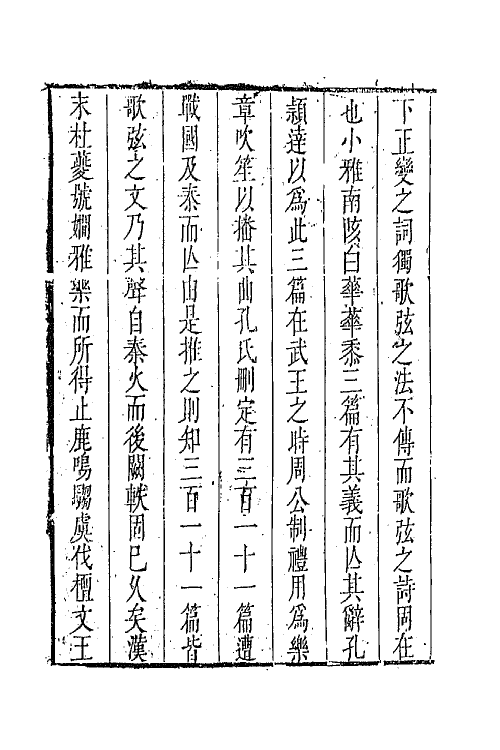 下正變之詞獨歌弦之法不傳而歌弦之詩固在
也小雅南陔白華華黍三篇有其義而亾其辭孔
頴達以爲此三篇在武王之時周公制禮用爲樂
章吹笙以播其曲孔氏刪定有三百一十一篇遭
戰國及秦而亾由是推之則知三百一十一篇皆
歌弦之文乃其聲自秦火而後闕軼固已久矣漢
末杜夔號嫺雅樂而所得止鹿鳴騶虞伐檀文王